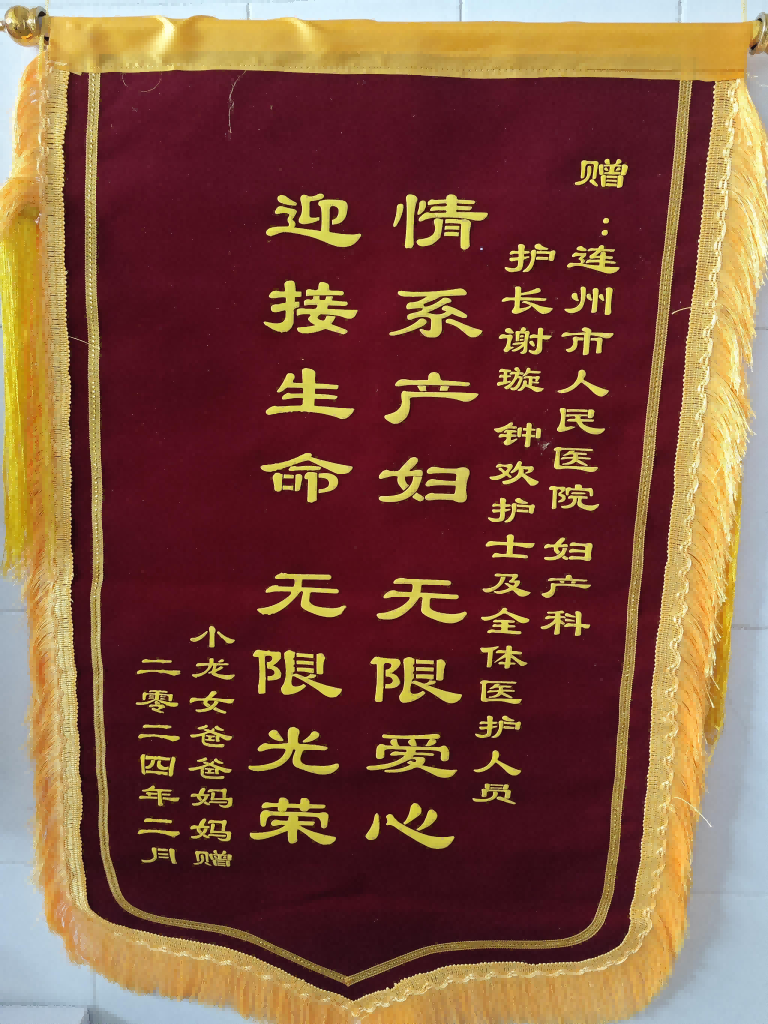 赠：连州市人民医院 妇产科
护长谢璇 钟欢护士及全体医护人员
情系产妇 无限爱心
迎接生命 无限光荣
小龙女爸爸妈妈赠
二零二四年二月